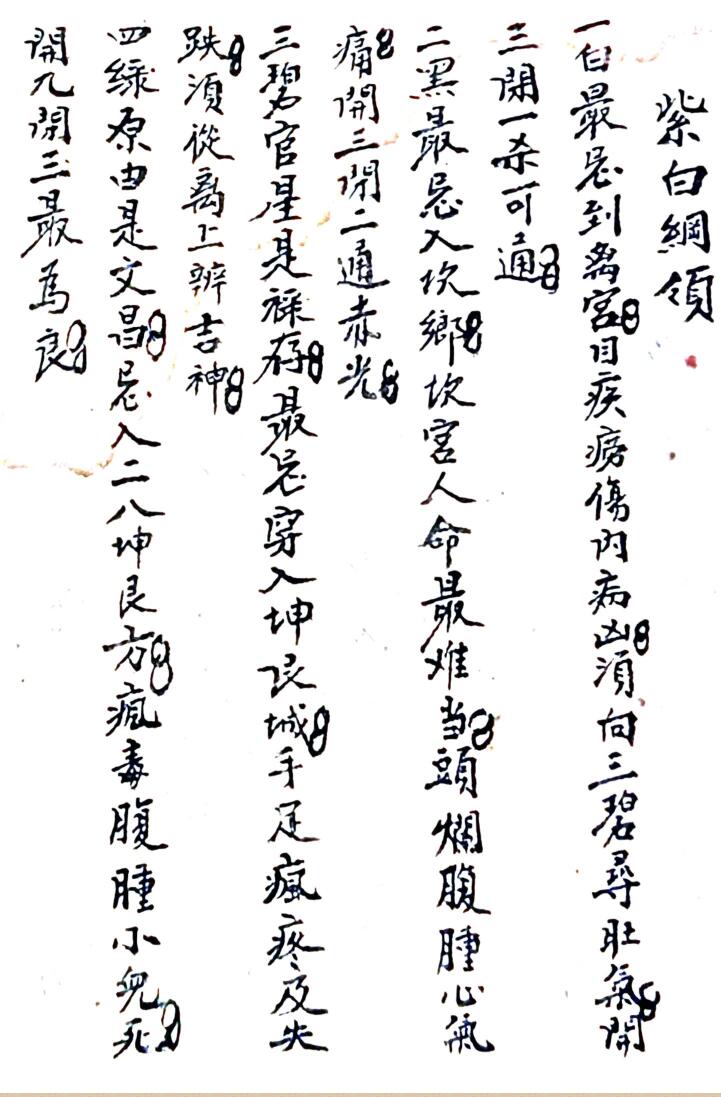 紫白綱領
一白最忌到离宮目疾痨傷內病凶須向三碧尋肚氣開
三開一杀可通
二黑最忌入坎鄉坎宫人命最难当頭爛腹腫心氣
痛開三開二通赤光
三碧官星是祿存最忌穿入坤艮城手足瘋疼及失
跌須從离上辨吉神
四緑原由是文昌忌入二八坤艮方瘋毒腹腫小兒死
開九開三最爲良